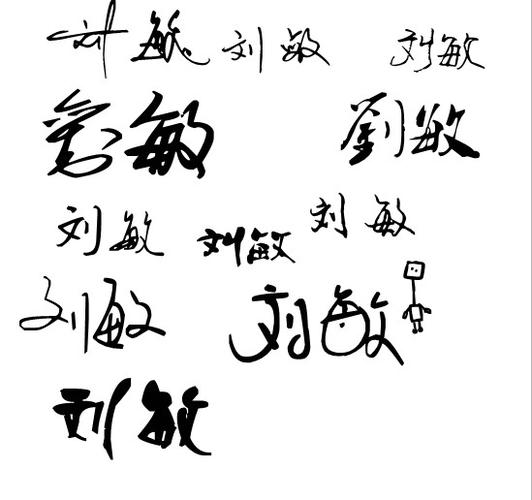 刘敏 刘敏 刘敏
劉敏 劉敏
刘敏 刘敏 刘敏
刘敏 刘敏
刘敏